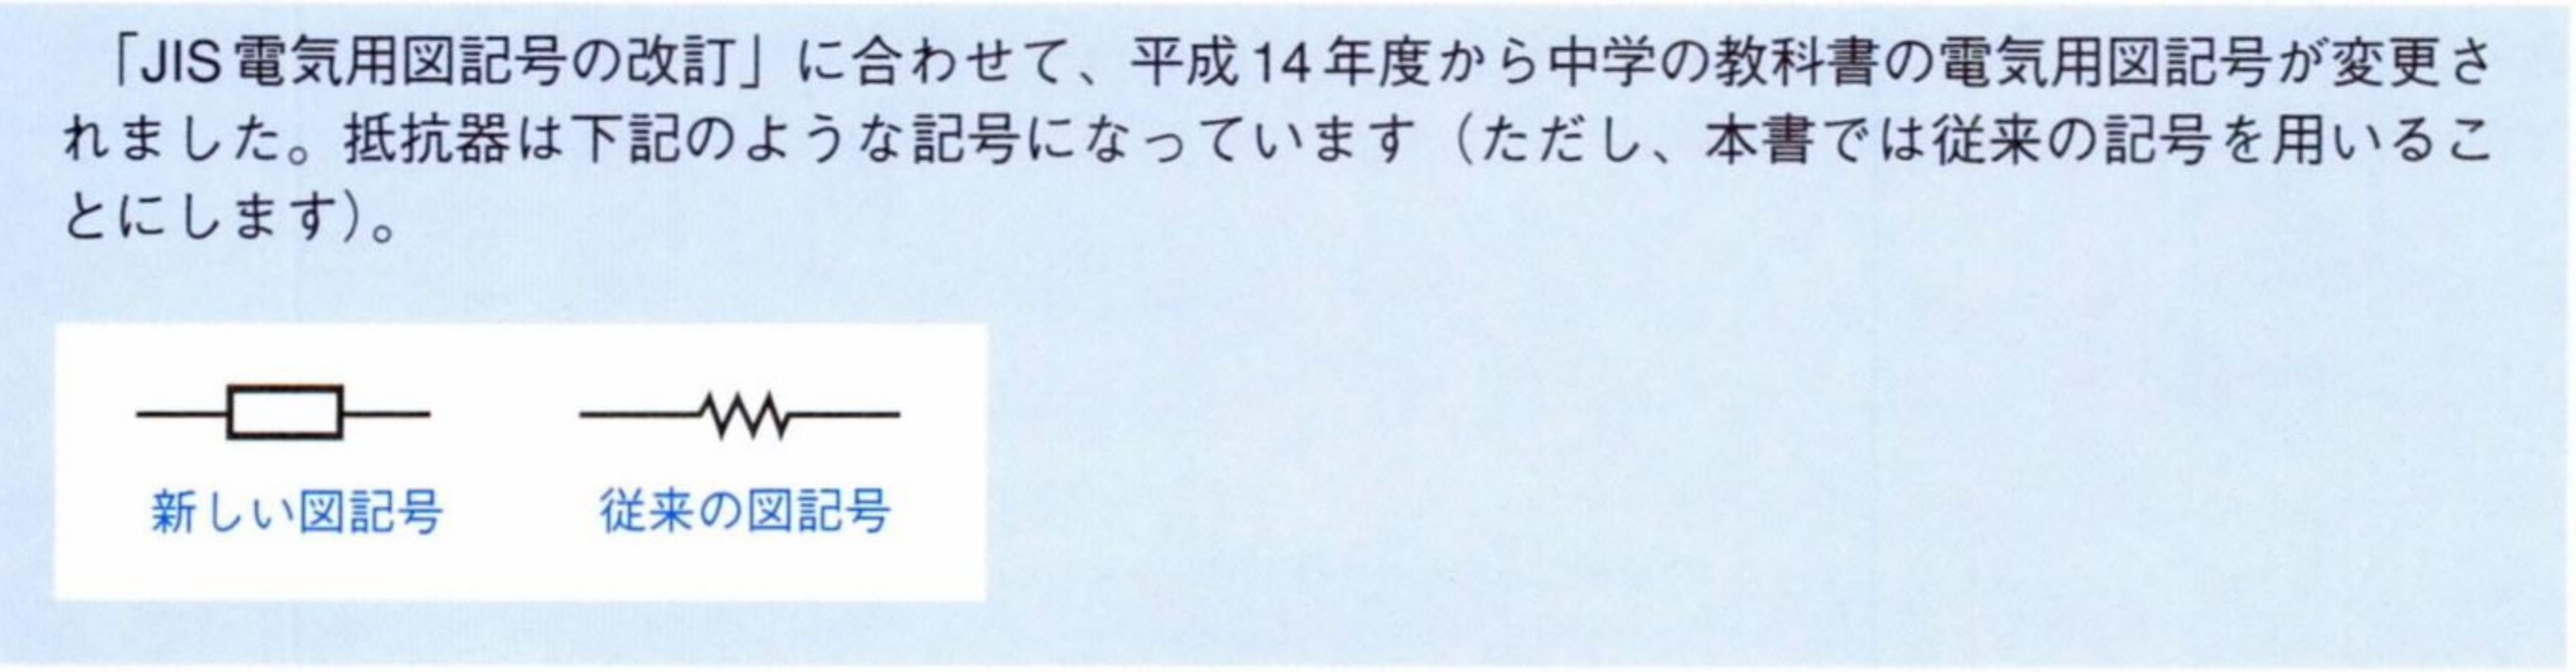 「JIS電気用図記号の改訂」に合わせて、平成14年度から中学の教科書の電気用図記号が変更さ
れました。抵抗器は下記のような記号になっています（ただし、本書では従来の記号を用いるこ
とにします）。
新しい図記号
従来の図記号